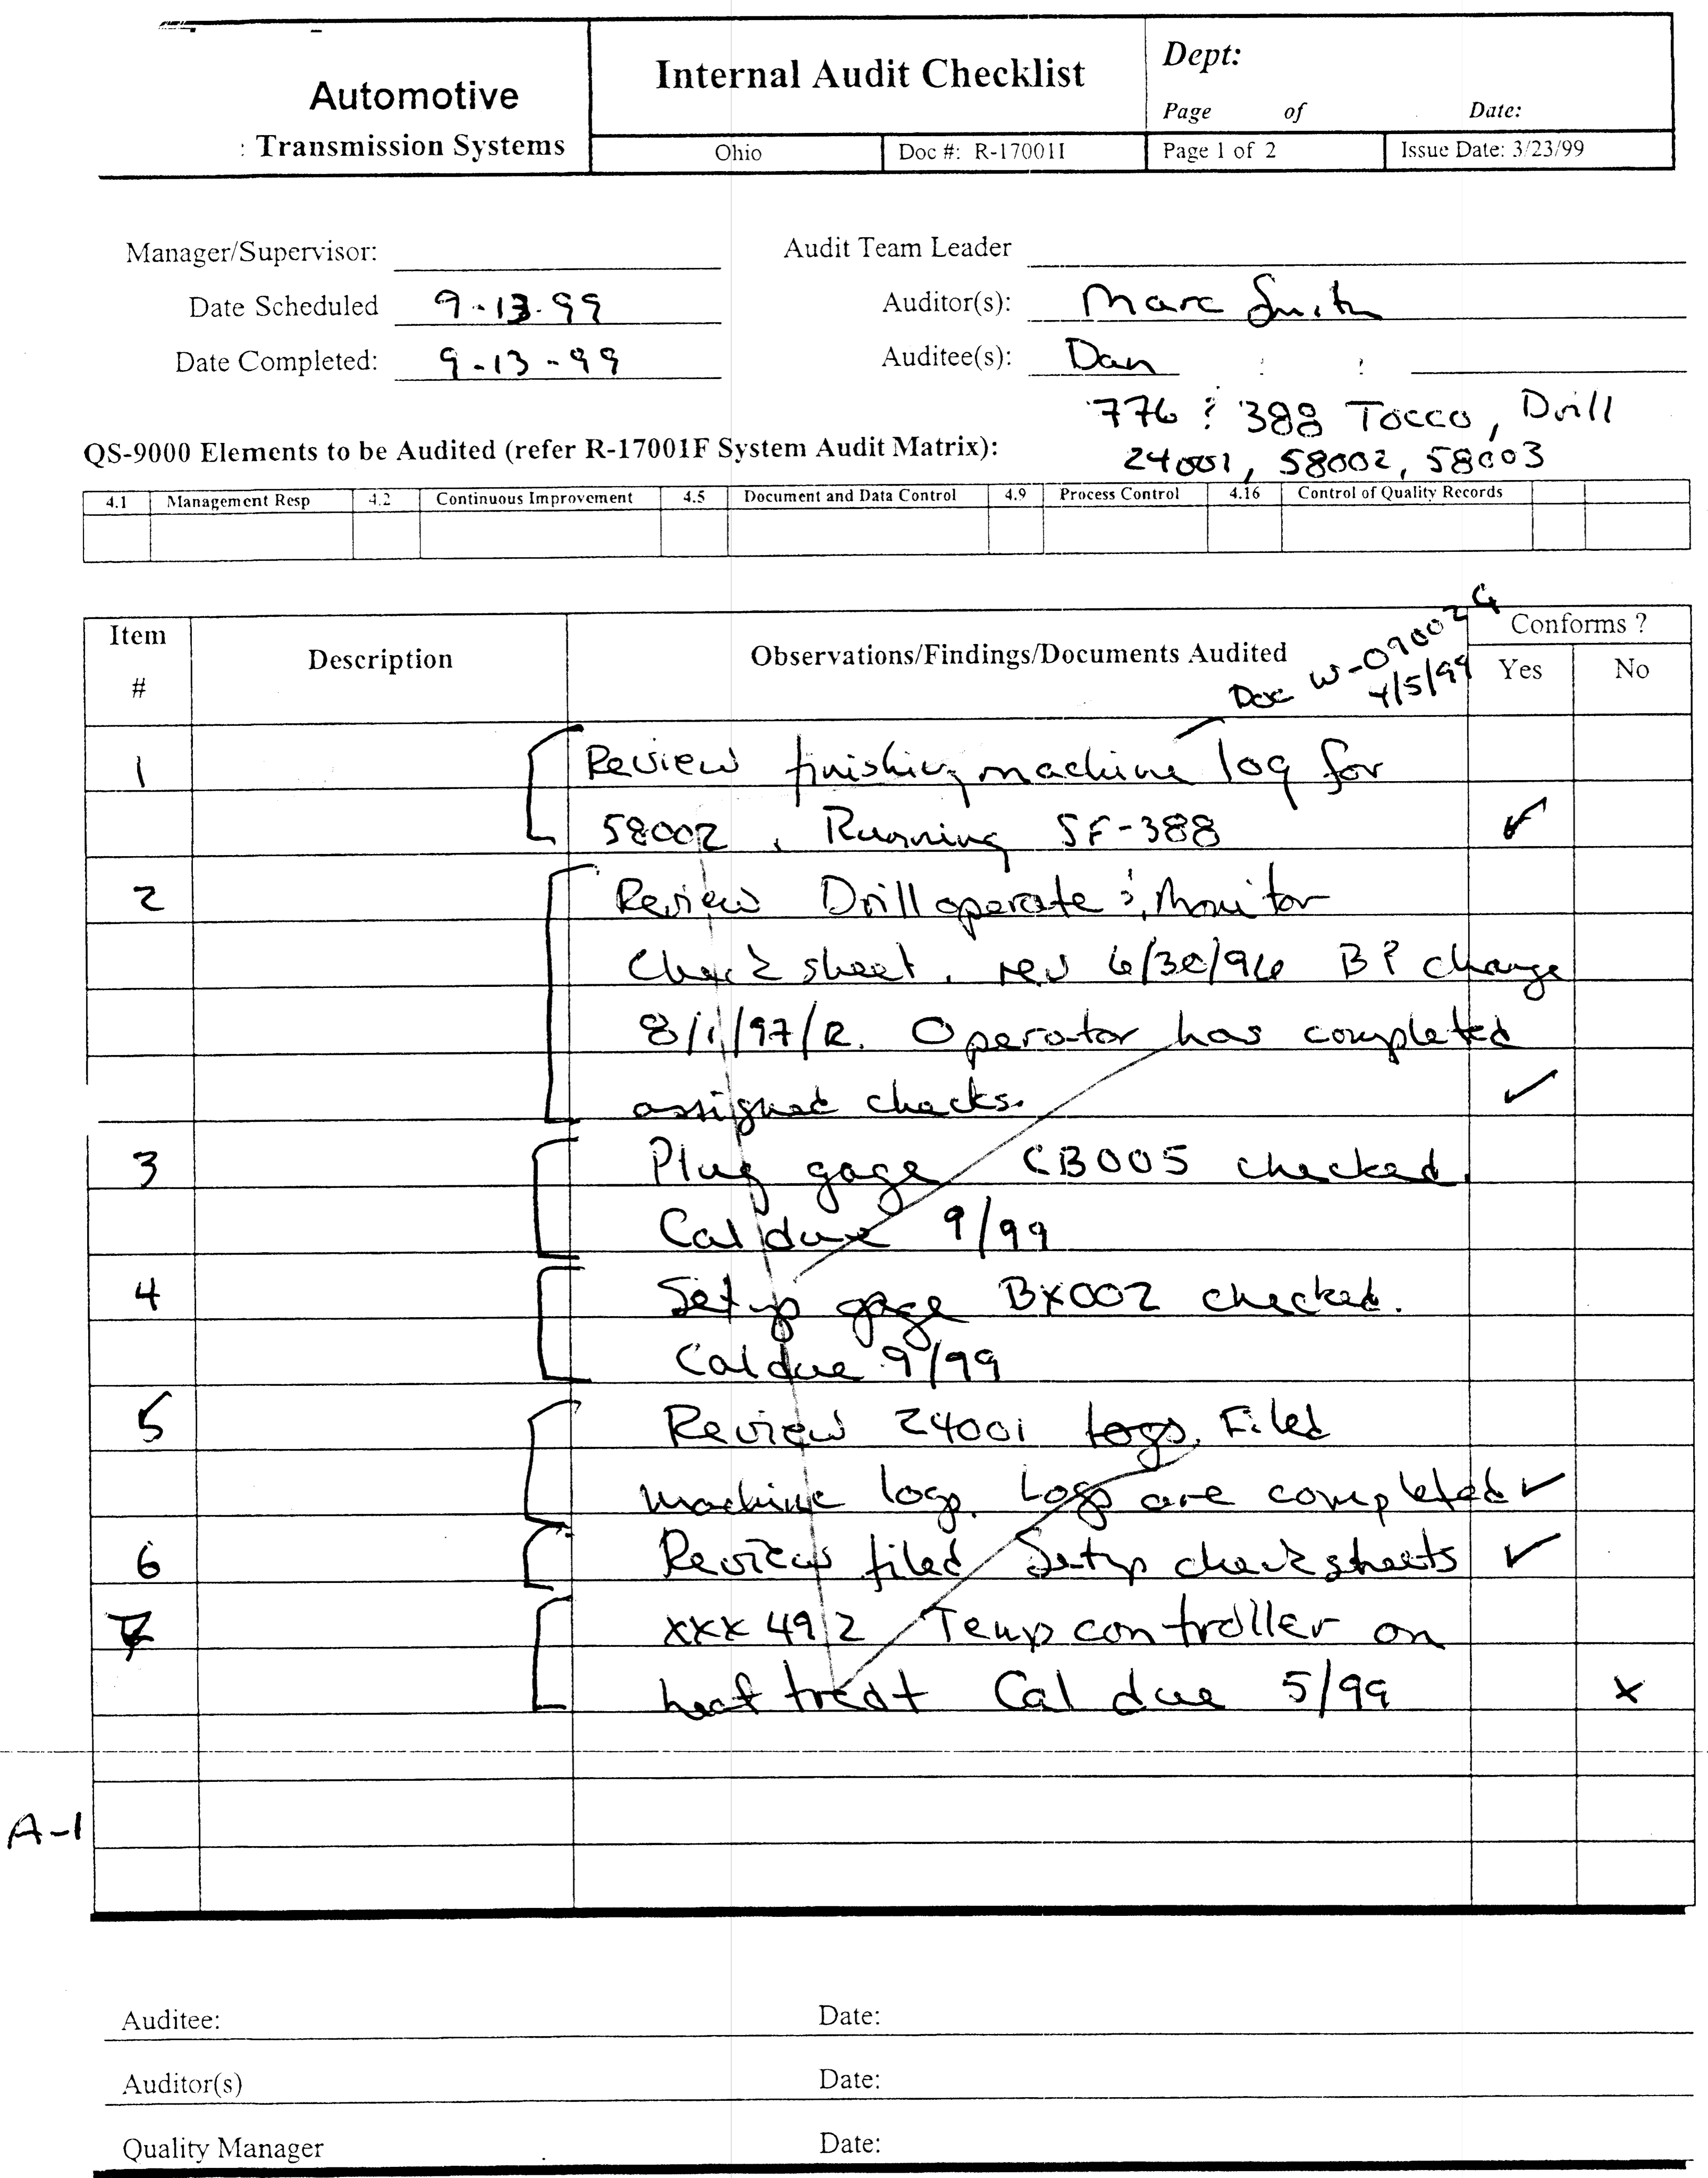 Automotive
: Transmission Systems
Internal Audit Checklist
Dept:
Page of Date:
Ohio Doc #: R-17001I Page 1 of 2 Issue Date: 3/23/99
Manager/Supervisor: Audit Team Leader
Date Scheduled 9-13-99 Auditor(s): Marc Smith
Date Completed: 9-13-99 Auditee(s): Dan
776 & 388 Tocco, Drill
QS-9000 Elements to be Audited (refer R-17001F System Audit Matrix): 24001, 58002, 58003
4.1 Management Resp 4.2 Continuous Improvement 4.5 Document and Data Control 4.9 Process Control 4.16 Control of Quality Records
Item # Description Observations/Findings/Documents Audited Conforms ?
Yes No
Doc W-09002G
4/5/99
1 Review finishing machine log for
58002, Running SF-388 ✓
2 Review Drill operate & Monitor
Check sheet. rev 6/30/96 BP change
8/1/97/R. Operator has completed
assigned checks. ✓
3 Plug gage CB005 checked.
Cal due 9/99
4 Setup gage BX002 checked.
Cal due 9/99
5 Review 24001 logs. Filed
machine logs. Logs are completed ✓
6 Review filed Setup check sheets ✓
7 XXX 492 Temp controller on
heat treat Cal due 5/99 X
A-1
Auditee: Date:
Auditor(s) Date:
Quality Manager Date: